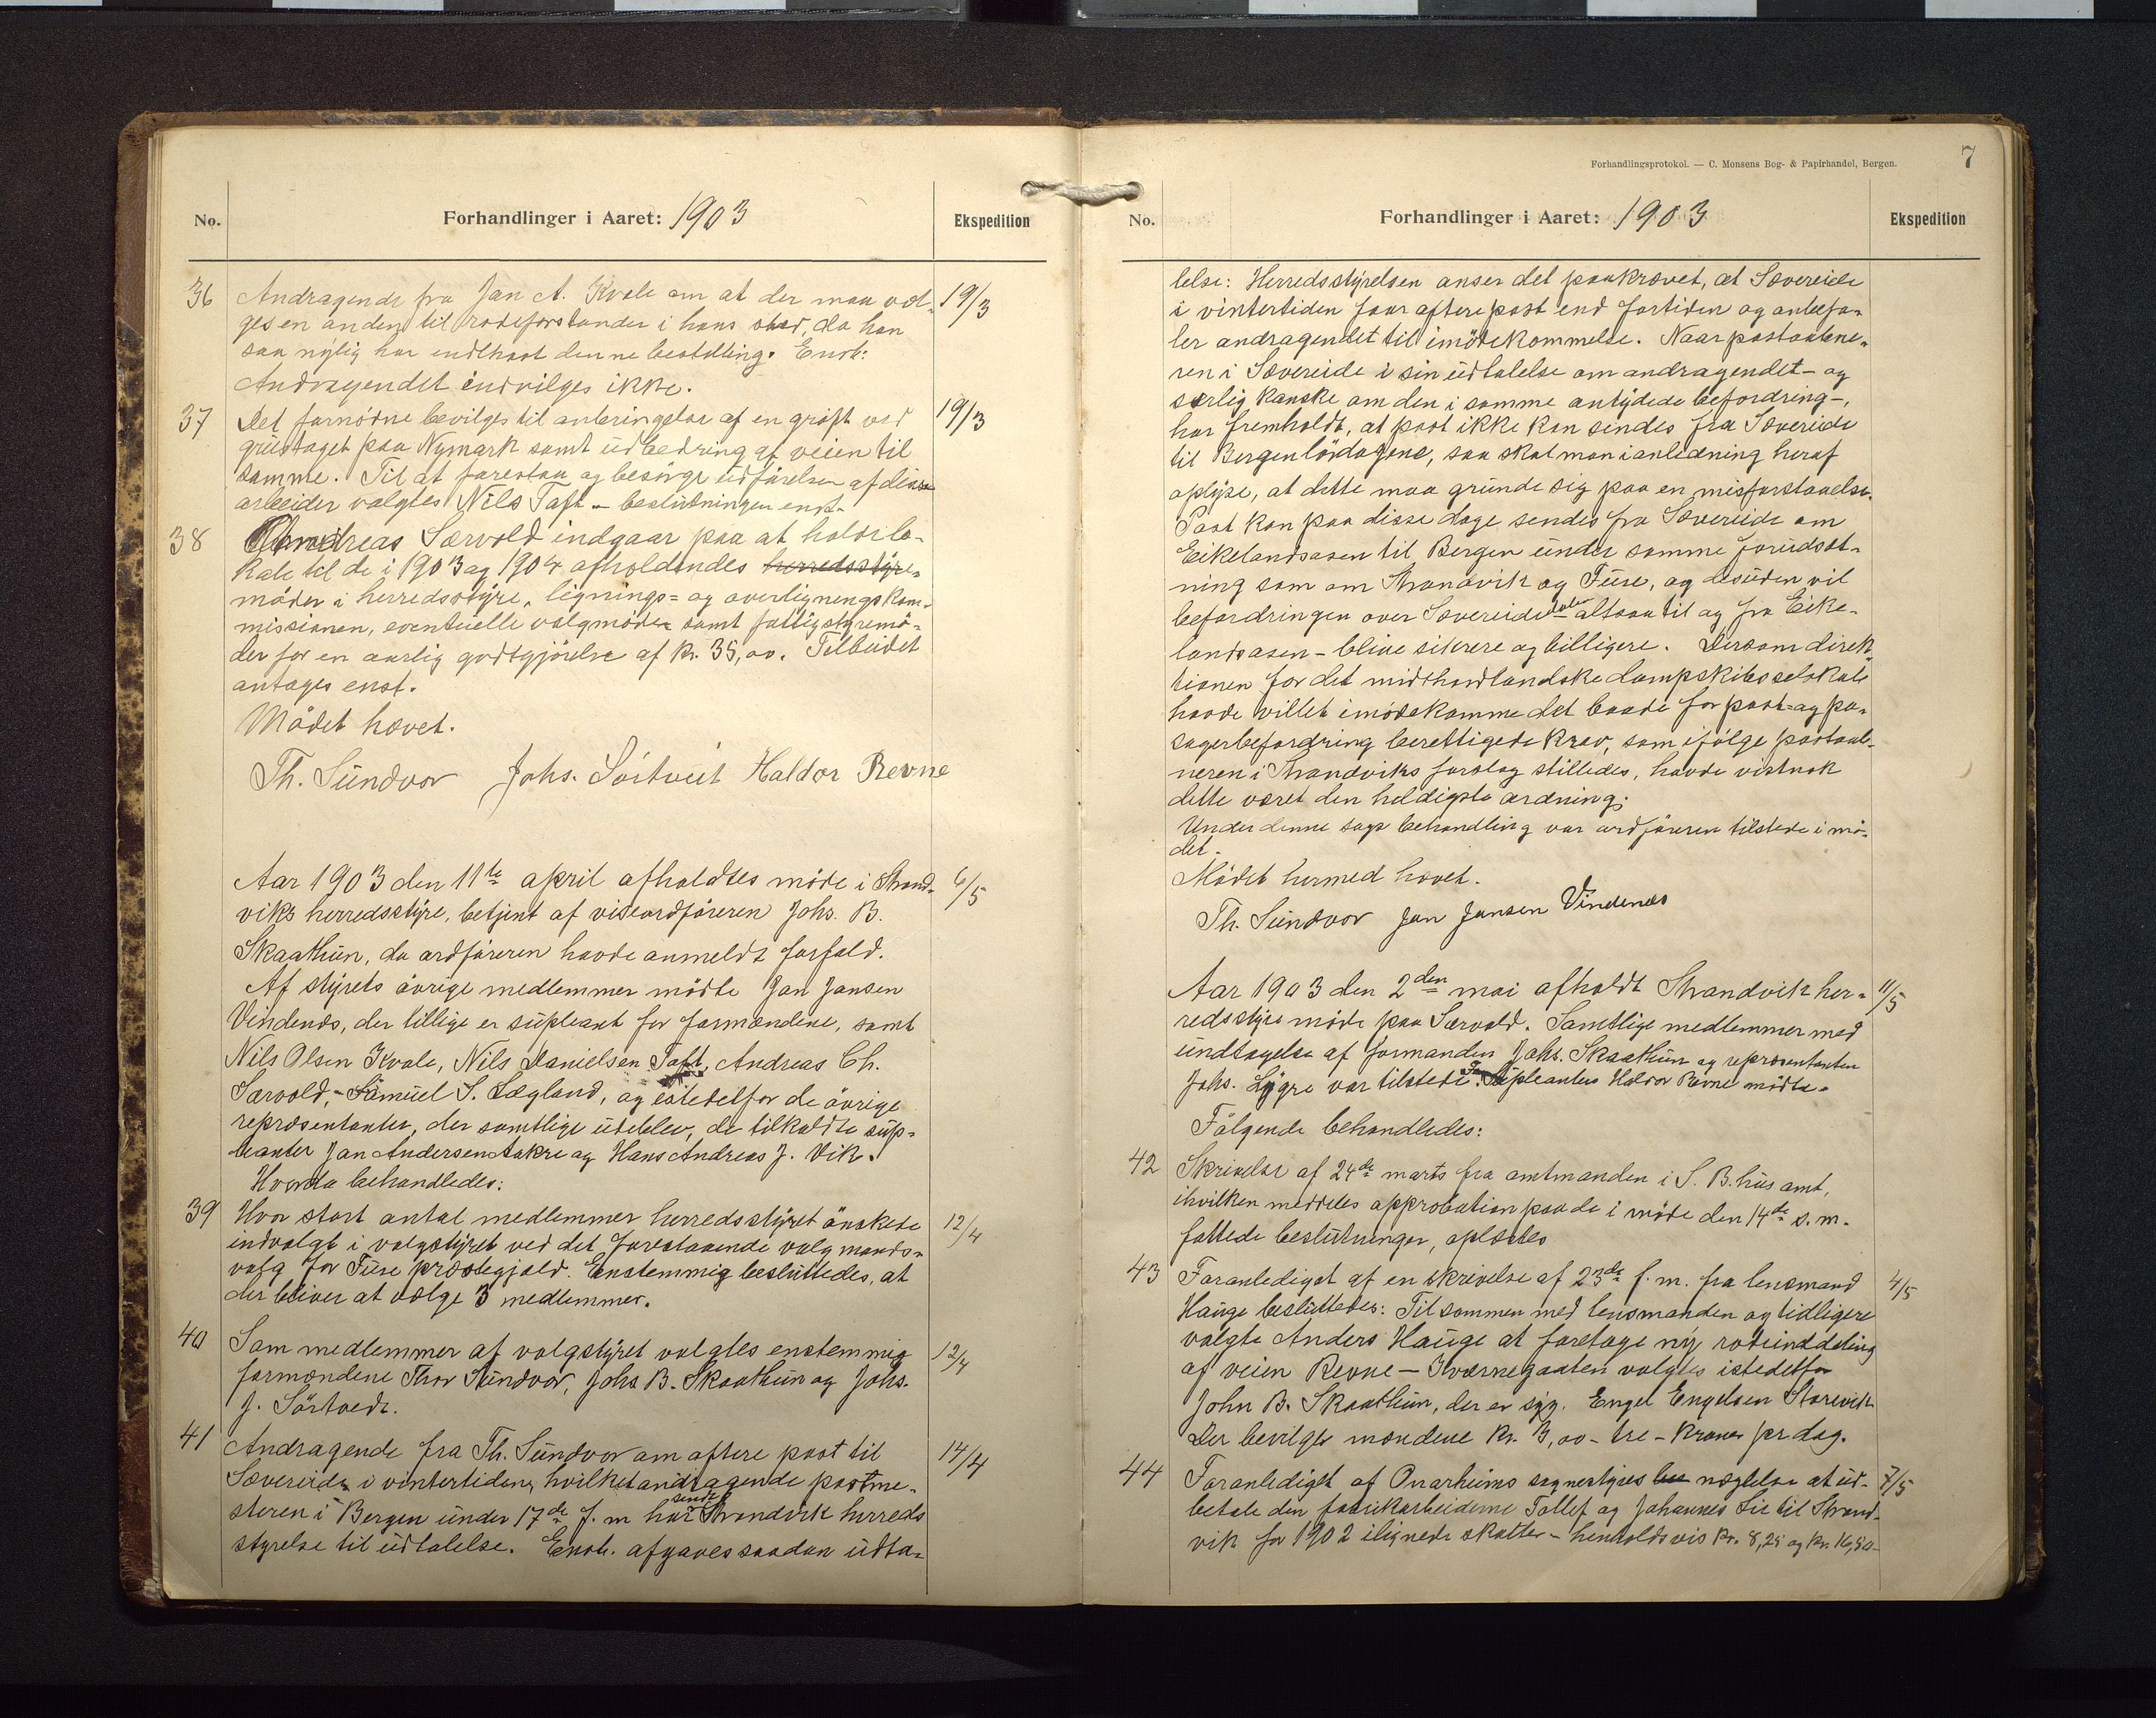 No.
Forhandlinger i Aaret: 1903
Ekspedition
36 Andragende fra Jan A. Kvale om at der maa væl- 19/3
ges en anden til rodeforstander i hans sted, da han
saa nylig har endthavt denne bestilling. Enst:
Andragendet indvilges ikke.
37 Det fornödne bevilges til anbringelse af en gröft ved 19/3
grustaget paa Nymark samt udbedring af veien til
samme. Til at forestaa og besörge udförelsen af disse
arbeider valgtes Nils Taft - beslutningen enst.
38 Andreas Særvold indgaar paa at holde lo-
kale til de i 1903 og 1904 afholdendes herredsstyre-
möder i herredsstyre, lignings= og overligningskom-
missionen, eventuelle valgmöder samt fattigstyremö-
der for en aarlig godtgjörelse af kr. 35,00. Tilbudet
antages enst.
Mödet hævet.
Th. Sundvor Johs. Sörtveit Haldor Revne
Aar 1903 den 11te april afholdtes möde i Strand- 6/5
viks herredsstyre, betjent af viseordföreren Johs. B.
Skaathun, da ordföreren havde anmeldt forfald.
Af styrets övrige medlemmer mödte Jan Jansen
Vindenes, der tillige er supleant for formændene, samt
Nils Olsen Kvale, Nils Danielsen Taft, Andreas Ch.
Særvold, - Samuel S. Lægland, og istedetfor de övrige
repræsentanter, der samtlige udeblev, de tilkaldte sup-
leanter Jan Andersen Aakre og Hans Andreas J. Vik.
Hvorda behandledes:
39 Hvor stort antal medlemmer herredsstyret önskede 12/4
indvalgt i valgstyret ved det forestaaende valgmands-
valg for Fuse præstegjeld. Enstemmig besluttedes, at
der bliver at vælge 3 medlemmer.
40 Som medlemmer af valgstyret valgtes enstemmig 12/4
formændene Thor Sundvor, Johs B. Skaathun og Johs.
J. Sörtvedt.
41 Andragende fra Th. Sundvor om oftere post til 14/4
Sævereide i vintertiden, hvilket andragende postme-
steren i Bergen under 17de f. m har sendt Strandvik herreds
styrelse til udtalelse. Enst. afgaves saadan udta-
Forhandlingsprotokol. — C. Monsens Bog- & Papirhandel, Bergen.
7
No.
Forhandlinger i Aaret: 1903
Ekspedition
lelse: Herredsstyrelsen anser det paakrævet, at Sævereide
i vintertiden faar oftere post end fortiden og anbefa-
ler andragendet til imödekommelse. Naar postaabne-
ren i Sævereide i sin udtalelse om andragendet - og
særlig kanske om den i samme antydede befordring -,
har fremholdt, at post ikke kan sendes fra Sævereide
til Bergen lördagene, saa skal man i anledning heraf
oplyse, at dette maa grunde sig paa en misforstaaelse.
Post kan paa disse dage sendes fra Sævereide om
Eikelandsosen til Bergen under samme forudsæt-
ning som om Strandvik og Fuse, og desuden vil
befordringen over Sævereide - altsaa til og fra Eike-
landsosen - blive sikrere og billigere. Dersom direk-
tionen for det midthordlandske dampskibsselskab
havde villet imödekomme det baade for post= og pa-
sagerbefordring berettigede krav, som ifölge postaab-
neren i Strandviks forslag stilledes, havde vistnok
dette været den heldigste ordning.
Under denne sags behandling var ordföreren tilstede i mö-
det.
Mödet hermed hævet.
Th. Sundvor Jan Jansen Vindenes
Aar 1903 den 2den mai afholdt Strandvik her- 11/5
redsstyre möde paa Særvold. Samtlige medlemmer med
undtagelse af formanden Johs. Skaathun og repræsentanten
Johs. Lygre var tilstede. Supleanten Haldor Revne mödte.
Fölgende behandledes:
42 Skrivelse af 24de marts fra amtmanden i S. B.hus amt,
ihvilken meddeles approbation paa de i möde den 14de s. m.
fattede beslutninger, oplæstes
43 Foranlediget af en skrivelse af 23de f. m. fra lensmand 4/5
Hauge besluttedes: Til sammen med lensmanden og tidligere
valgte Anders Hauge at foretage ny rodeinddeling
af veien Revne — Kværnegaaten valgtes istedetfor
John B. Skaathun, der er syg. Engel Engelsen Storevik
Der bevilges mændene kr. 3,00 - tre - kroner pr dag.
44 Foranlediget af Onarheims sognestyres nægtelse at ud- 7/5
betale den fabrikarbeiderne Tollef og Johannes Lie til Strand-
vik for 1902 ilignede skatter - henholdsvis kr. 8,25 og kr. 16,50 -